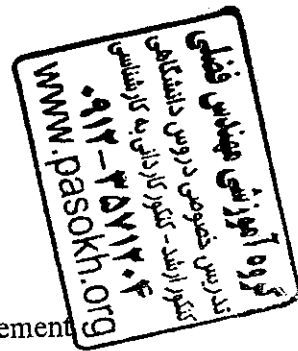 گروه آموزشی مهندس فضلی
تدریس خصوصی دروس دانشگاهی
کنکور ارشد - کنکور کاردانی به کارشناسی
۰۹۱۲-۳۵۷۱۲۰۴
www.pasokh.org
ement